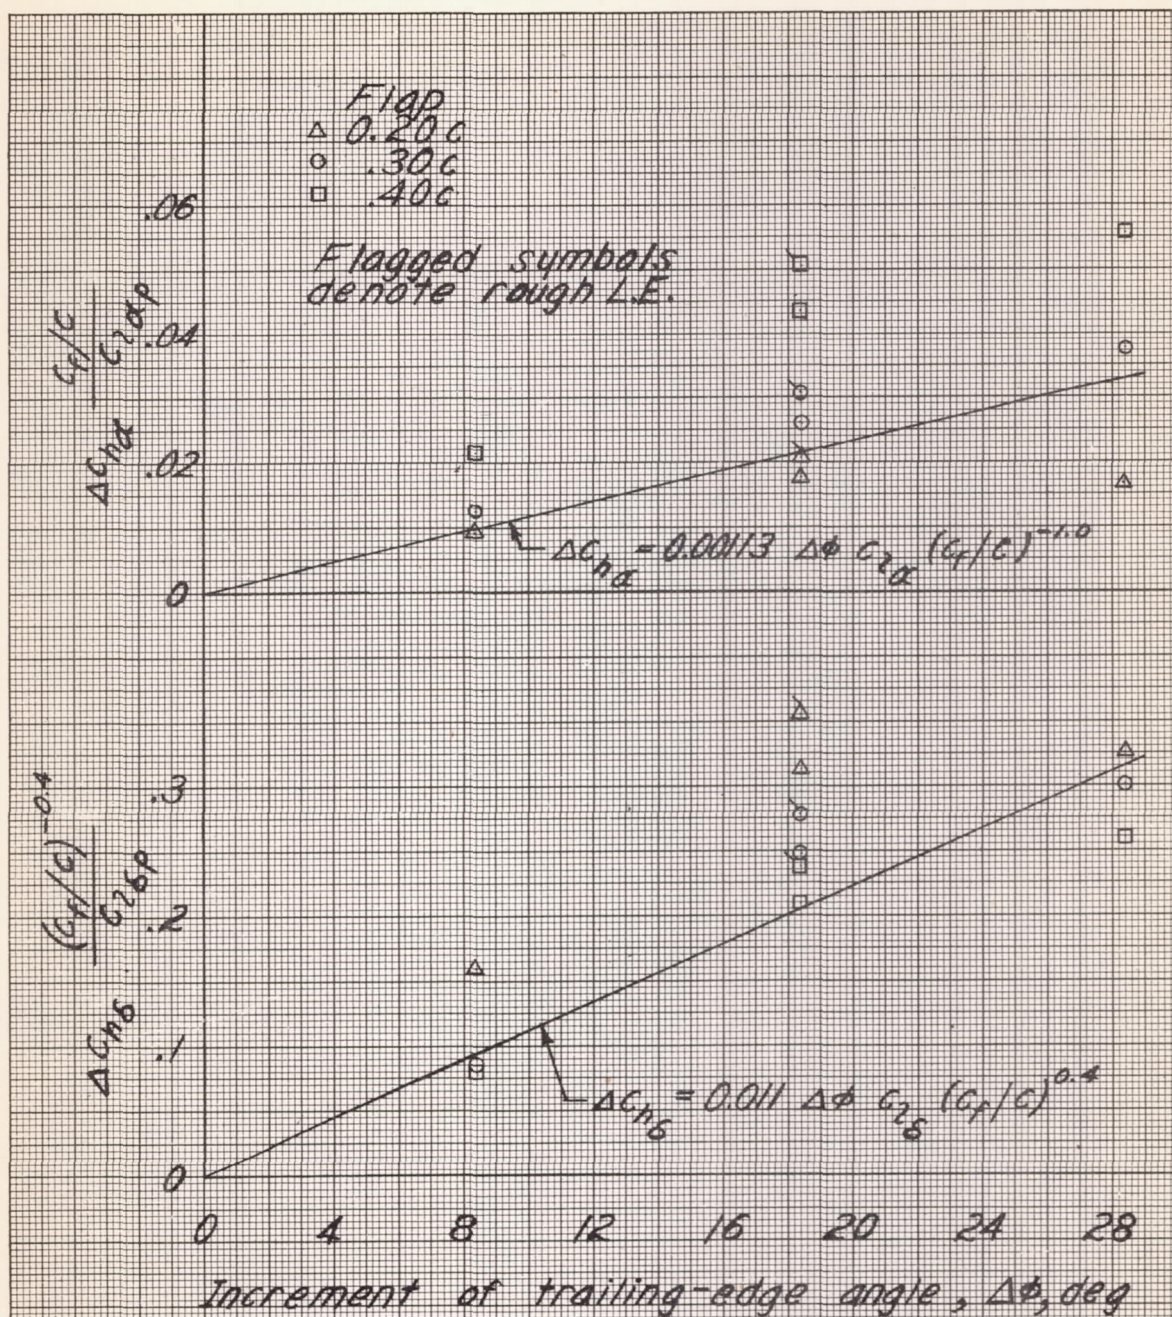 Flap
△ 0.20c
○ .30c
□ .40c
Flagged symbols
denote rough L.E.
.06
.04
.02
0
Δc_hα (c_f/c)/(c_lαp)
Δc_hα = 0.00113 Δϕ c_lα (c_f/c)^-1.0
.3
.2
.1
0
Δc_hδ (c_f/c)^-0.4/(c_lδp)
Δc_hδ = 0.011 Δϕ c_lδ (c_f/c)^0.4
0 4 8 12 16 20 24 28
Increment of trailing-edge angle, Δϕ, deg